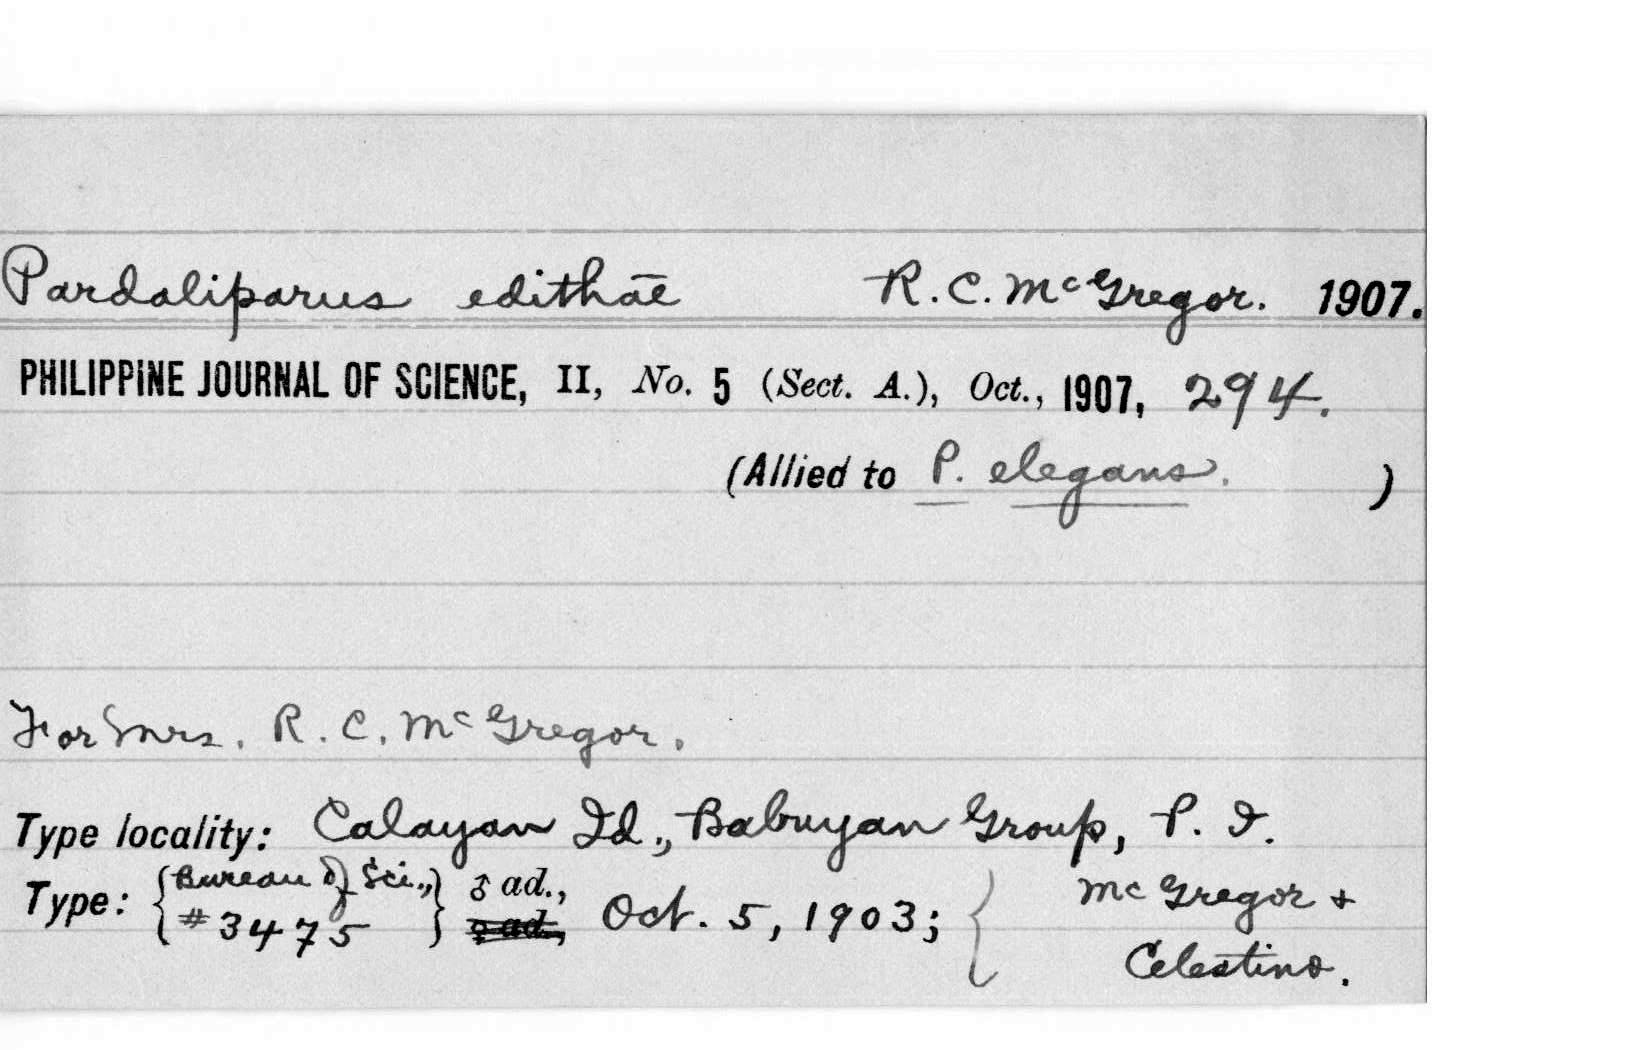 Pardaliparus edithae R. C. McGregor. 1907.
PHILIPPINE JOURNAL OF SCIENCE, II, No. 5 (Sect. A.), Oct., 1907, 294.
(Allied to P. elegans. )
For Mrs. R. C. McGregor.
Type locality: Calayan Id., Babuyan Group, P. I.
Type: { Bureau of Sci., #3475 } ♂ ad., ♀ ad., Oct. 5, 1903; { McGregor + Celestino.